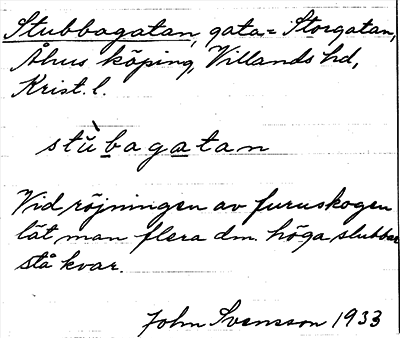 Stubbagatan, gata = Storgatan,
Åhus köping, Villands hd,
Krist. l.
stùbagatan
Vid röjningen av furuskogen
lät man flera dm. höga stubbar
stå kvar.
John Svensson 1933